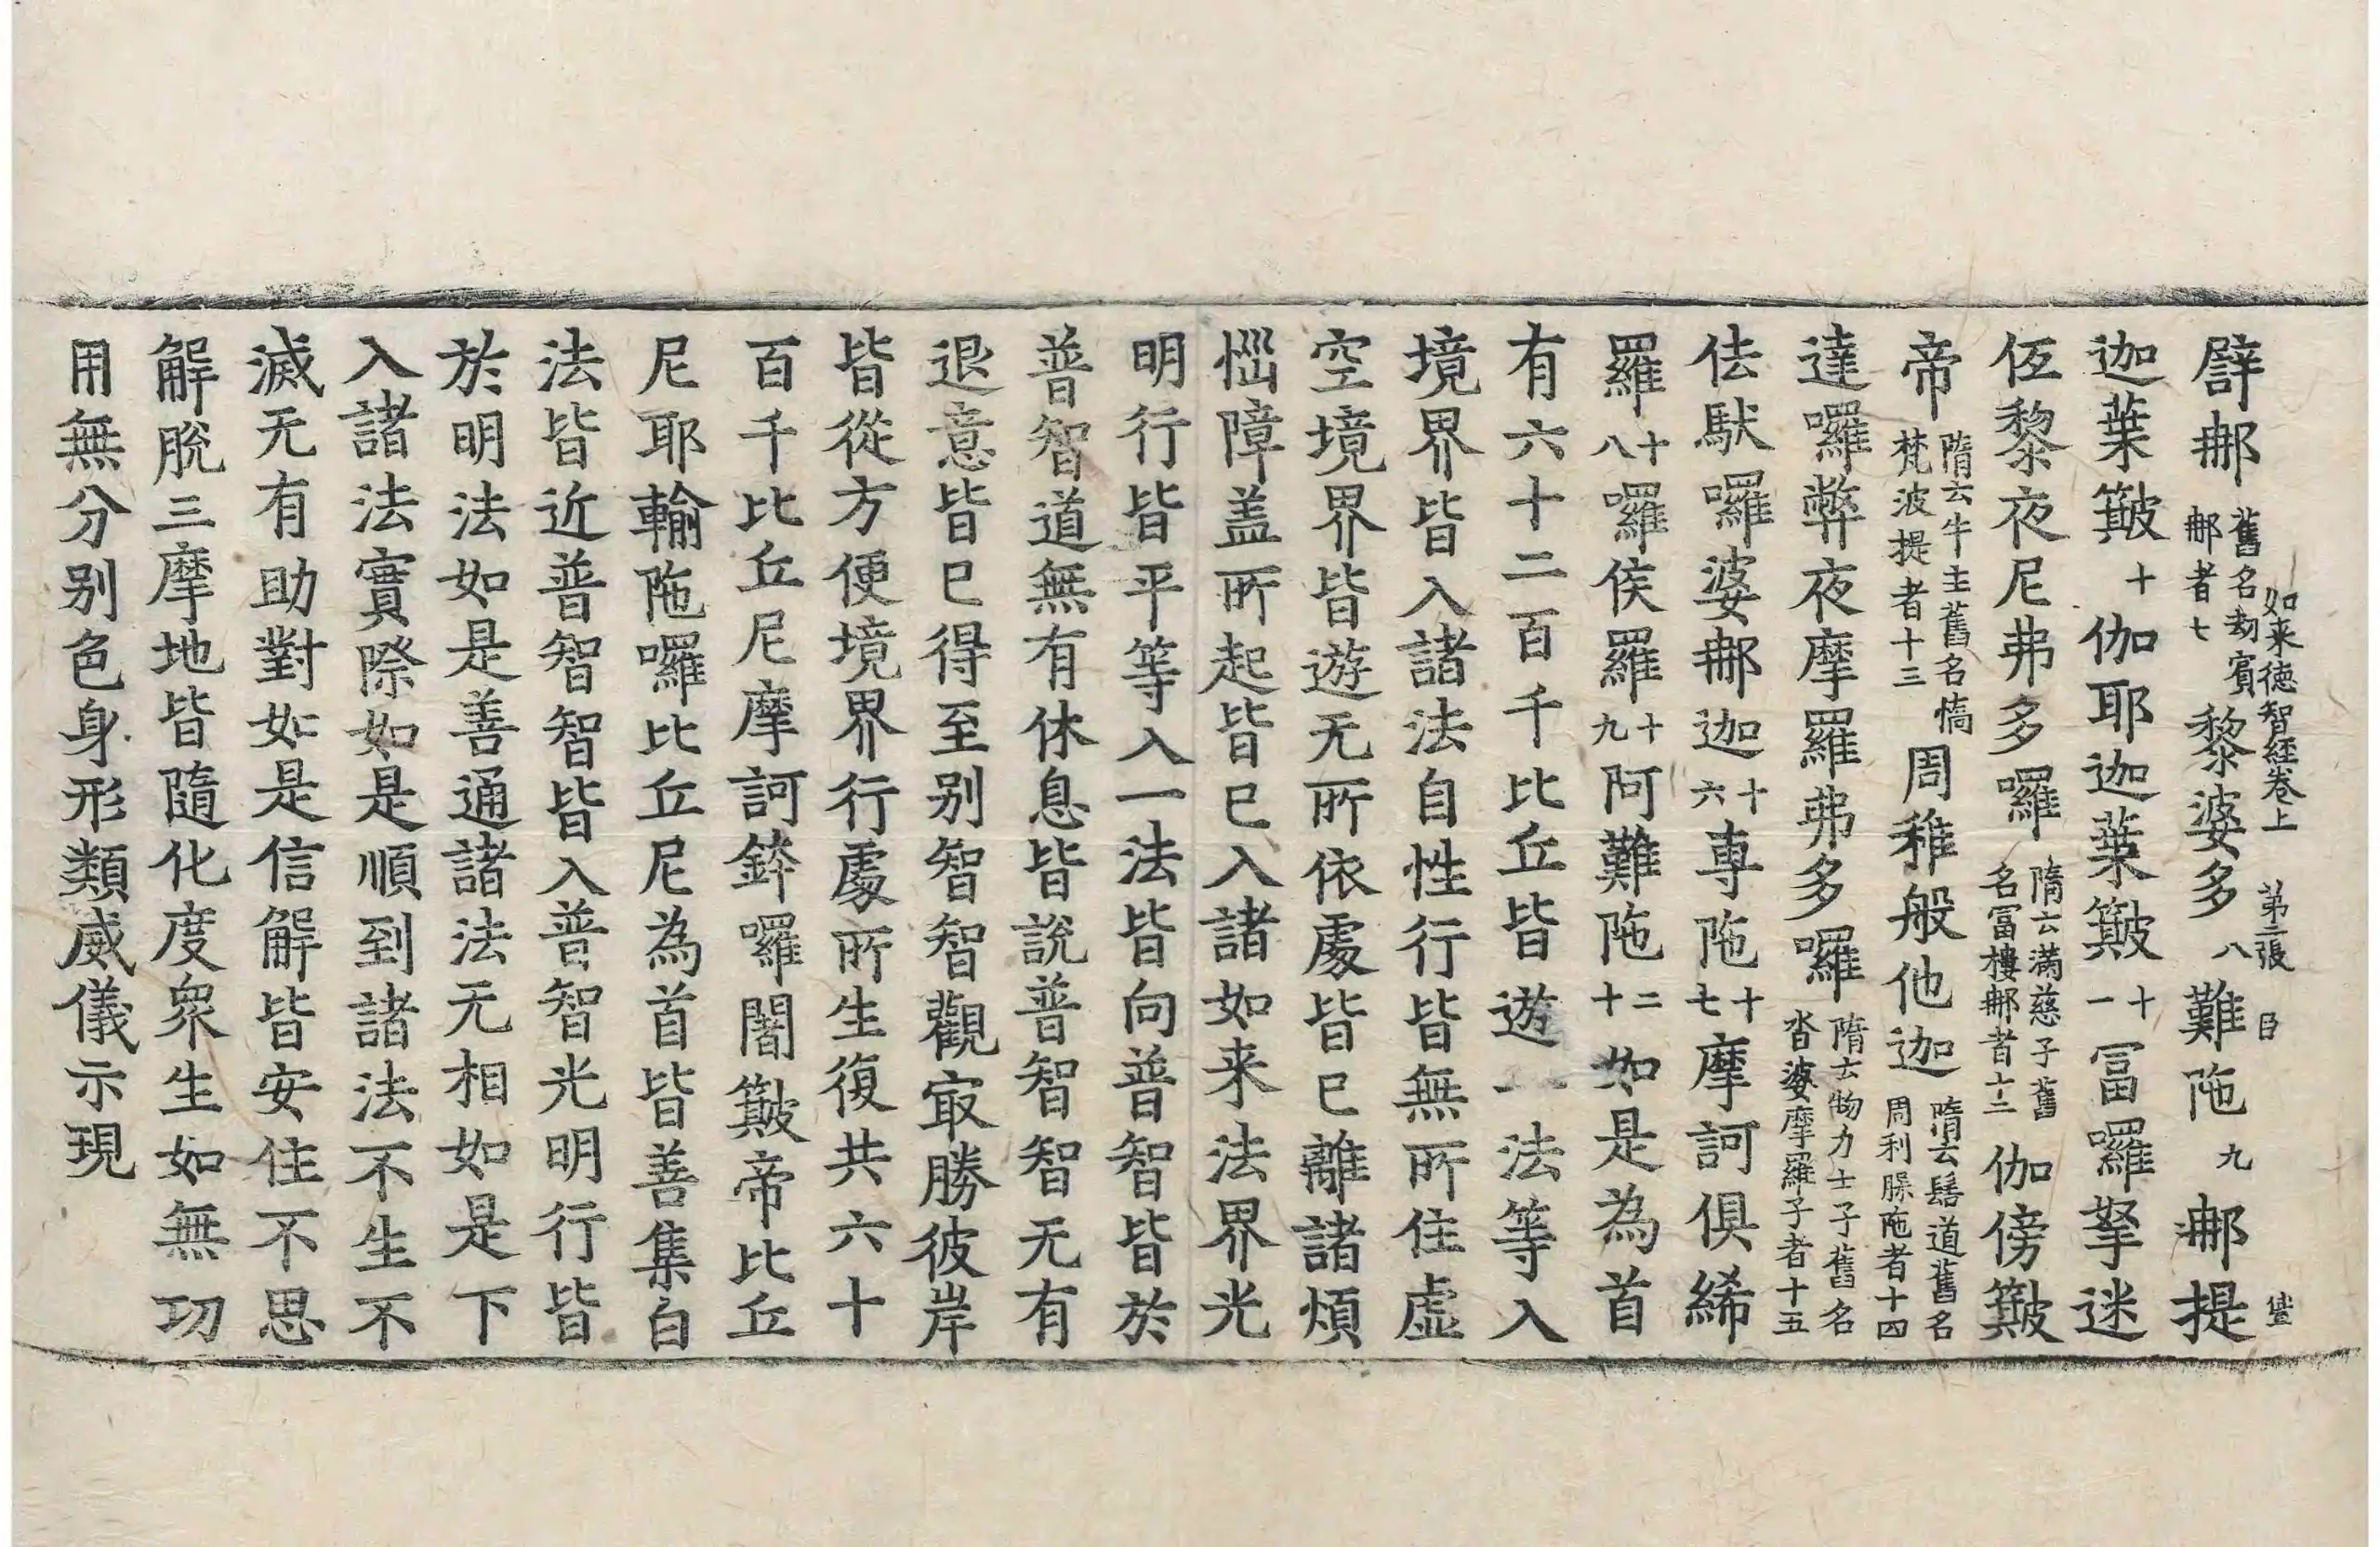 如来德智經卷上 第二張 臣
臂㖠舊名刼賓㖠者七黎婆多八難陁九㖠提
迦葉簸十伽耶迦葉簸十一冨囉拏迷
低黎夜尼弗多囉隋云滿慈子舊名冨樓㖠者十二伽傍簸
帝隋云牛主舊名憍梵波提者十三周稚般他迦隋云髻道舊名周利腂陁者十四
達囉弊夜摩羅弗多囉隋云物力士子舊名沓婆摩羅子者十五
佉馱囉婆㖠迦十六専陁十七摩訶俱絺
羅十八囉侯羅十九阿難陁二十如是為首
有六十二百千比丘皆遊一法等入
境界皆入諸法自性行皆無所住虛
空境界皆遊无所依處皆已離諸煩
惱障盖所起皆已入諸如来法界光
明行皆平等入一法皆向普智皆於
普智道無有休息皆說普智智无有
退意皆已得至别智智觀㝡勝彼岸
皆從方便境界行處所生復共六十
百千比丘尼摩訶鉢囉闍簸帝比丘
尼耶輸陁囉比丘尼為首皆善集白
法皆近普智智皆入普智光明行皆
於明法如是善通諸法无相如是下
入諸法實際如是順到諸法不生不
滅无有助對如是信解皆安住不思
解脫三摩地皆隨化度衆生如無功
用無分别色身形類威儀示現